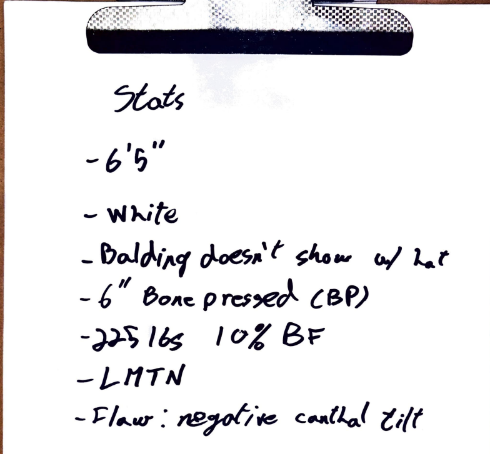 Stats
- 6'5"
- White
- Balding doesn't show w/ hat
- 6" Bone pressed (BP)
- 225 lbs 10% BF
- LMTN
- Flaw: negative canthal tilt